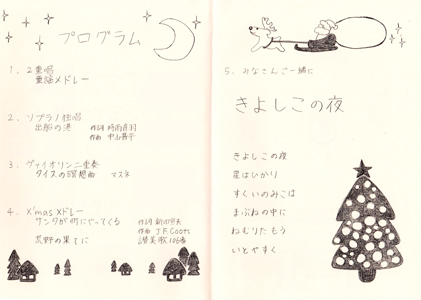 プログラム
1. 2重唱
童謡メドレー
2. ソプラノ独唱
出船の港 作詞 時雨音羽
作曲 中山晋平
3. ヴァイオリン二重奏
タイスの瞑想曲 マスネ
4. X'mas メドレー
サンタが町にやってくる 作詞
作曲 J.F.Coots
荒野の果てに 讃美歌106番
5. みなさんご一緒に
きよしこの夜
きよしこの夜
星はひかり
すくいのみこは
まぶねの中に
ねむりたもう
いとやすく